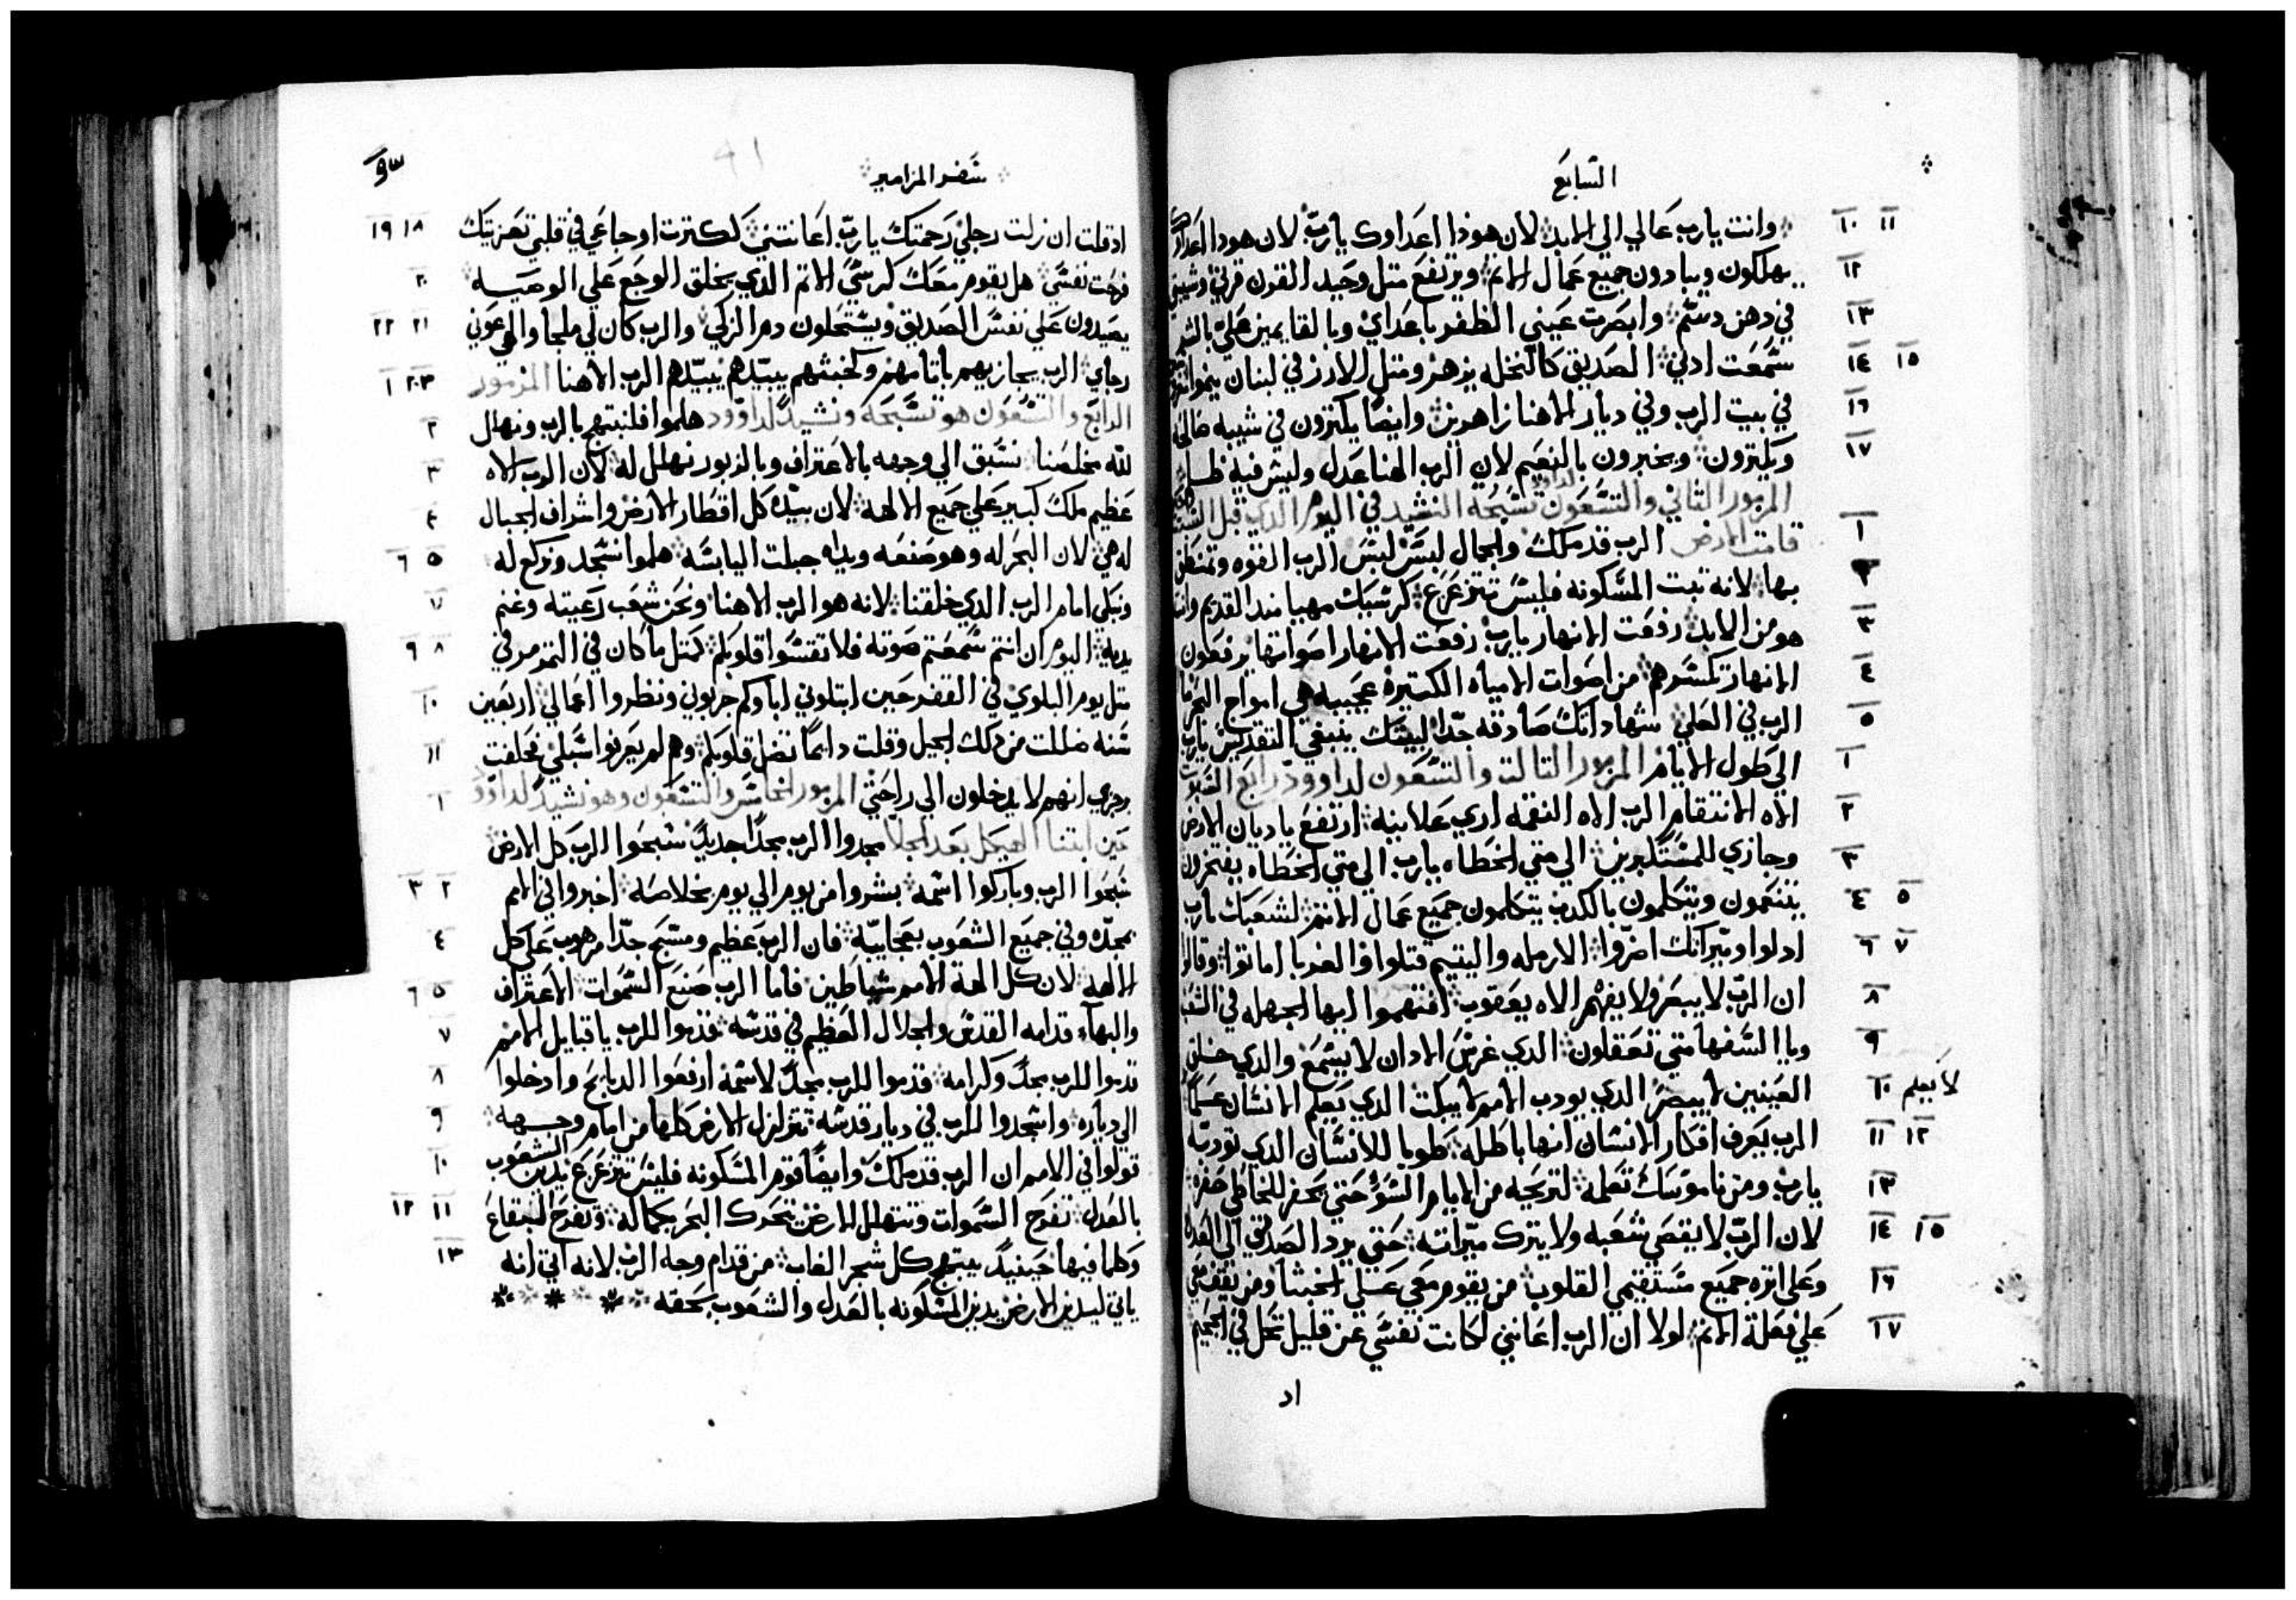 السابع
١٠ ١١ وانت يارب عالي الي الابد لان هوذا اعداوك يارب لان هودا اعداوك
١٢ يهلكون ويبادون جميع عمال الاثم ويرتفع متل وحيد القرن قرني وشيبتي
١٣ في دهن دسم وابصرت عيني الظفر باعداي وبالقايمين علي بالشر
١٤ ١٥ سمعت ادني الصديق كالنخله يزهر ومتل الارز في لبنان ينموا
١٦ في بيت الرب وفي ديار الاهنا زاهرين وايضا يكترون في شيبه صالحه
١٧ ويكترون ويخبرون بالنعيم لان الرب الهنا عدل وليس فيه ظلم
المزمور التاني والتسعون تسبحه النشيد لداوود في اليوم الدي قبل السبت
١ قامت الارض الرب قد ملك والجمال لبس لبس الرب القوه وتمنطق
٢ بها لانه تبت المسكونه فليس تتزعزع كرسيك مهيا مند القديم وانت
٣ هو من الابد رفعت الانهار يارب رفعت الانهار اصواتها يرفعون
٤ الانهار تكسرهم من اصوات الامياه الكتيره عجيبه هي امواج البحر
٥ الرب في العلي شهاداتك صادقه جدا لبيتك ينبغي التقديس يارب
١ الي طول الايام المزمور التالت والتسعون لداوود رابع السبوت
٢ الاه الانتقام الرب الاه النقمه اري علانيه ارتفع ياديان الارض
٣ وجازي للمستكبرين الي متي الخطاه يارب الي متي الخطاه يفتخرون
٤ ٥ يتنعمون ويتكلمون بالكدب يتكلمون جميع عمال الاتم لشعبك يارب
٦ ٧ ادلوا وميراتك اضروا الارمله واليتيم قتلوا والغربا اماتوا وقالوا
٨ ان الرب لا يبصر ولا يفهم الاه يعقوب افهموا ايها الجهله في الشعب
٩ ويا السفها متي تعقلون الدي غرس الادان لا يسمع والدي خلق
١٠ العينين لا يبصر الدي يودب الامم لا يبكت الدي يعلم الانسان علما
لا يعلم
١١ ١٢ الرب يعرف افكار الانسان انها باطله طوبا للانسان الدي تودبه
١٣ يارب ومن ناموسك تعلمه لتريحه من الايام السؤ حتي يحفر للخاطي حفره
١٤ ١٥ لان الرب لا يقصي شعبه ولا يترك ميراته حتي يرد الصدق الي القضا
١٦ وعلي اتره جميع مستقيمي القلوب من يقوم معي علي الخبتا ومن يقف معي
١٧ علي فعلة الاتم لولا ان الرب اعانني لكانت نفسي عن قليل تحل في الجحيم
اد
سفر المزامير
٩١
١٨ ١٩ اد قلت ان زلت رجلي رحمتك يارب اعانتني لكترت اوجاعي في قلبي تعزيتك
٢٠ فرحت نفسي هل يقوم معك كرسي الاتم الدي يخلق الوجع علي الوصيه
٢١ ٢٢ يصيدون علي نفس الصديق ويستحلون دم الزكي والرب كان لي ملجا والهي عوني
٢٣ ١ رجاي الرب يجازيهم باتامهم وكخبتهم يبيدهم يبيدهم الرب الاهنا المزمور
الرابع والتسعون هو تسبحه ونشيد لداوود هلموا فلنبتهج بالرب ونهلل
٣ لله مخلصنا نسبق الي وجهه بالاعتراف وبالزبور نهلل له لان الرب الاه
٤ عظيم ملك كبير علي جميع الالهه لان بيده كل اقطار الارض واشراف الجبال
٥ ٦ له هي لان البحر له وهو صنعه ويداه جبلت اليابسه هلموا نسجد ونركع له
٧ ونبكي امام الرب الدي خلقنا لانه هو الرب الاهنا ونحن شعب رعيته وغنم
٨ ٩ يديه اليوم ان انتم سمعتم صوته فلا تقسوا قلوبكم كمتل ما كان في التمرمر في
١٠ متل يوم البلوي في القفر حين ابتلوني اباوكم جربوني ونظروا اعمالي اربعين
١١ سنه ضللت من دلك الجيل وقلت دايما تضل قلوبكم وهم لم يعرفوا سبلي فحلفت
١ برجزي انهم لا يدخلون الي راحتي المزمور الخامس والتسعون وهو نشيد لداوود
حين ابتنا الهيكل بعد الجلا مجدوا الرب مجدا جديدا سبحوا الرب كل الارض
٢ ٣ سبحوا الرب وباركوا اسمه بشروا من يوم الي يوم بخلاصه اخبروا في الامم
٤ بمجده وفي جميع الشعوب بعجايبه فان الرب عظيم ومسبح جدا مرهوب علي كل
٥ ٦ الالهه لان كل الهة الامم شياطين فاما الرب صنع السموات الاعتراف
٧ والبهاء قدامه القدس والجلال العظيم في قدسه قدموا للرب يا قبايل الامم
٨ قدموا للرب مجدا وكرامه قدموا للرب مجدا لاسمه ارفعوا الدبايح وادخلوا
٩ الي دياره واسجدوا للرب في ديار قدسه تتزلزل الارض كلها من امام وجهه
١٠ قولوا في الامم ان الرب قد ملك وايضا قوم المسكونه فليس تتزعزع يدين الشعوب
١١ ١٢ بالعدل تفرح السموات وتتهلل الارض يتحرك البحر بكماله وتفرح البقاع
١٣ وكلما فيها حينيد يبتهج كل شجر الغاب من قدام وجه الرب لانه اتي انه
ياتي ليدين الارض يدين المسكونه بالعدل والشعوب بحقه